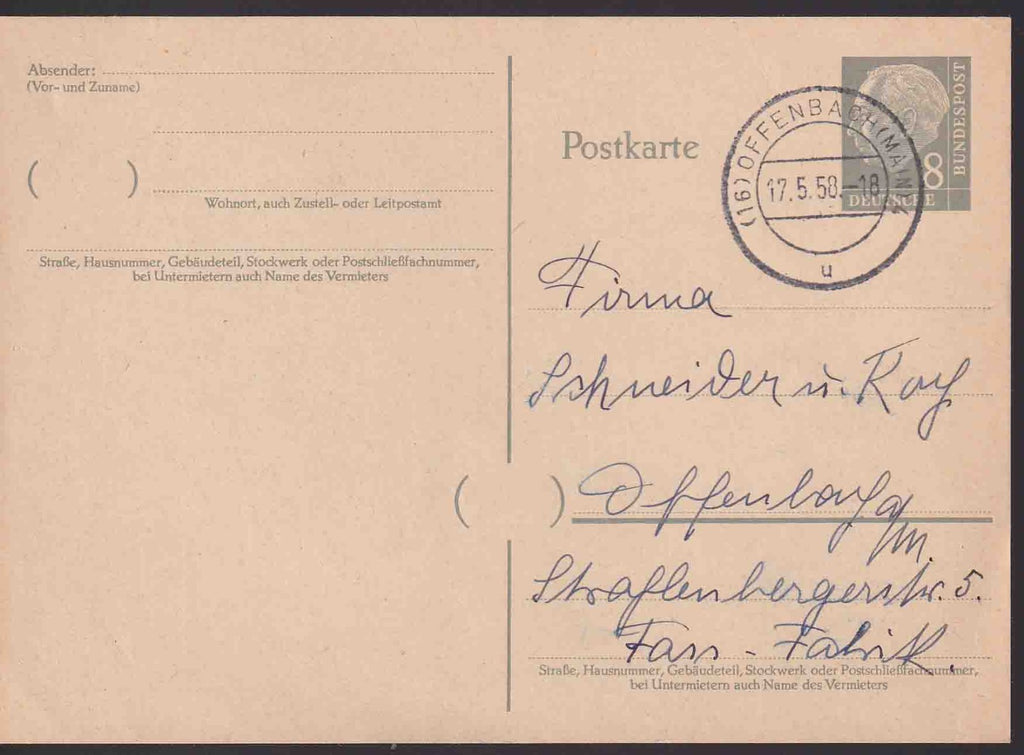 Absender:
(Vor- und Zuname)
( )
Wohnort, auch Zustell- oder Leitpostamt
Straße, Hausnummer, Gebäudeteil, Stockwerk oder Postschließfachnummer,
bei Untermietern auch Name des Vermieters
Postkarte
8
DEUTSCHE
BUNDESPOST
(16) OFFENBACH (MAIN)
17.5.58.-18
u
Firma
Schneider u.
( ) Offenbach a/
M.
5.
Fass - Fabrik.
Straße, Hausnummer, Gebäudeteil, Stockwerk oder Postschließfachnummer,
bei Untermietern auch Name des Vermieters